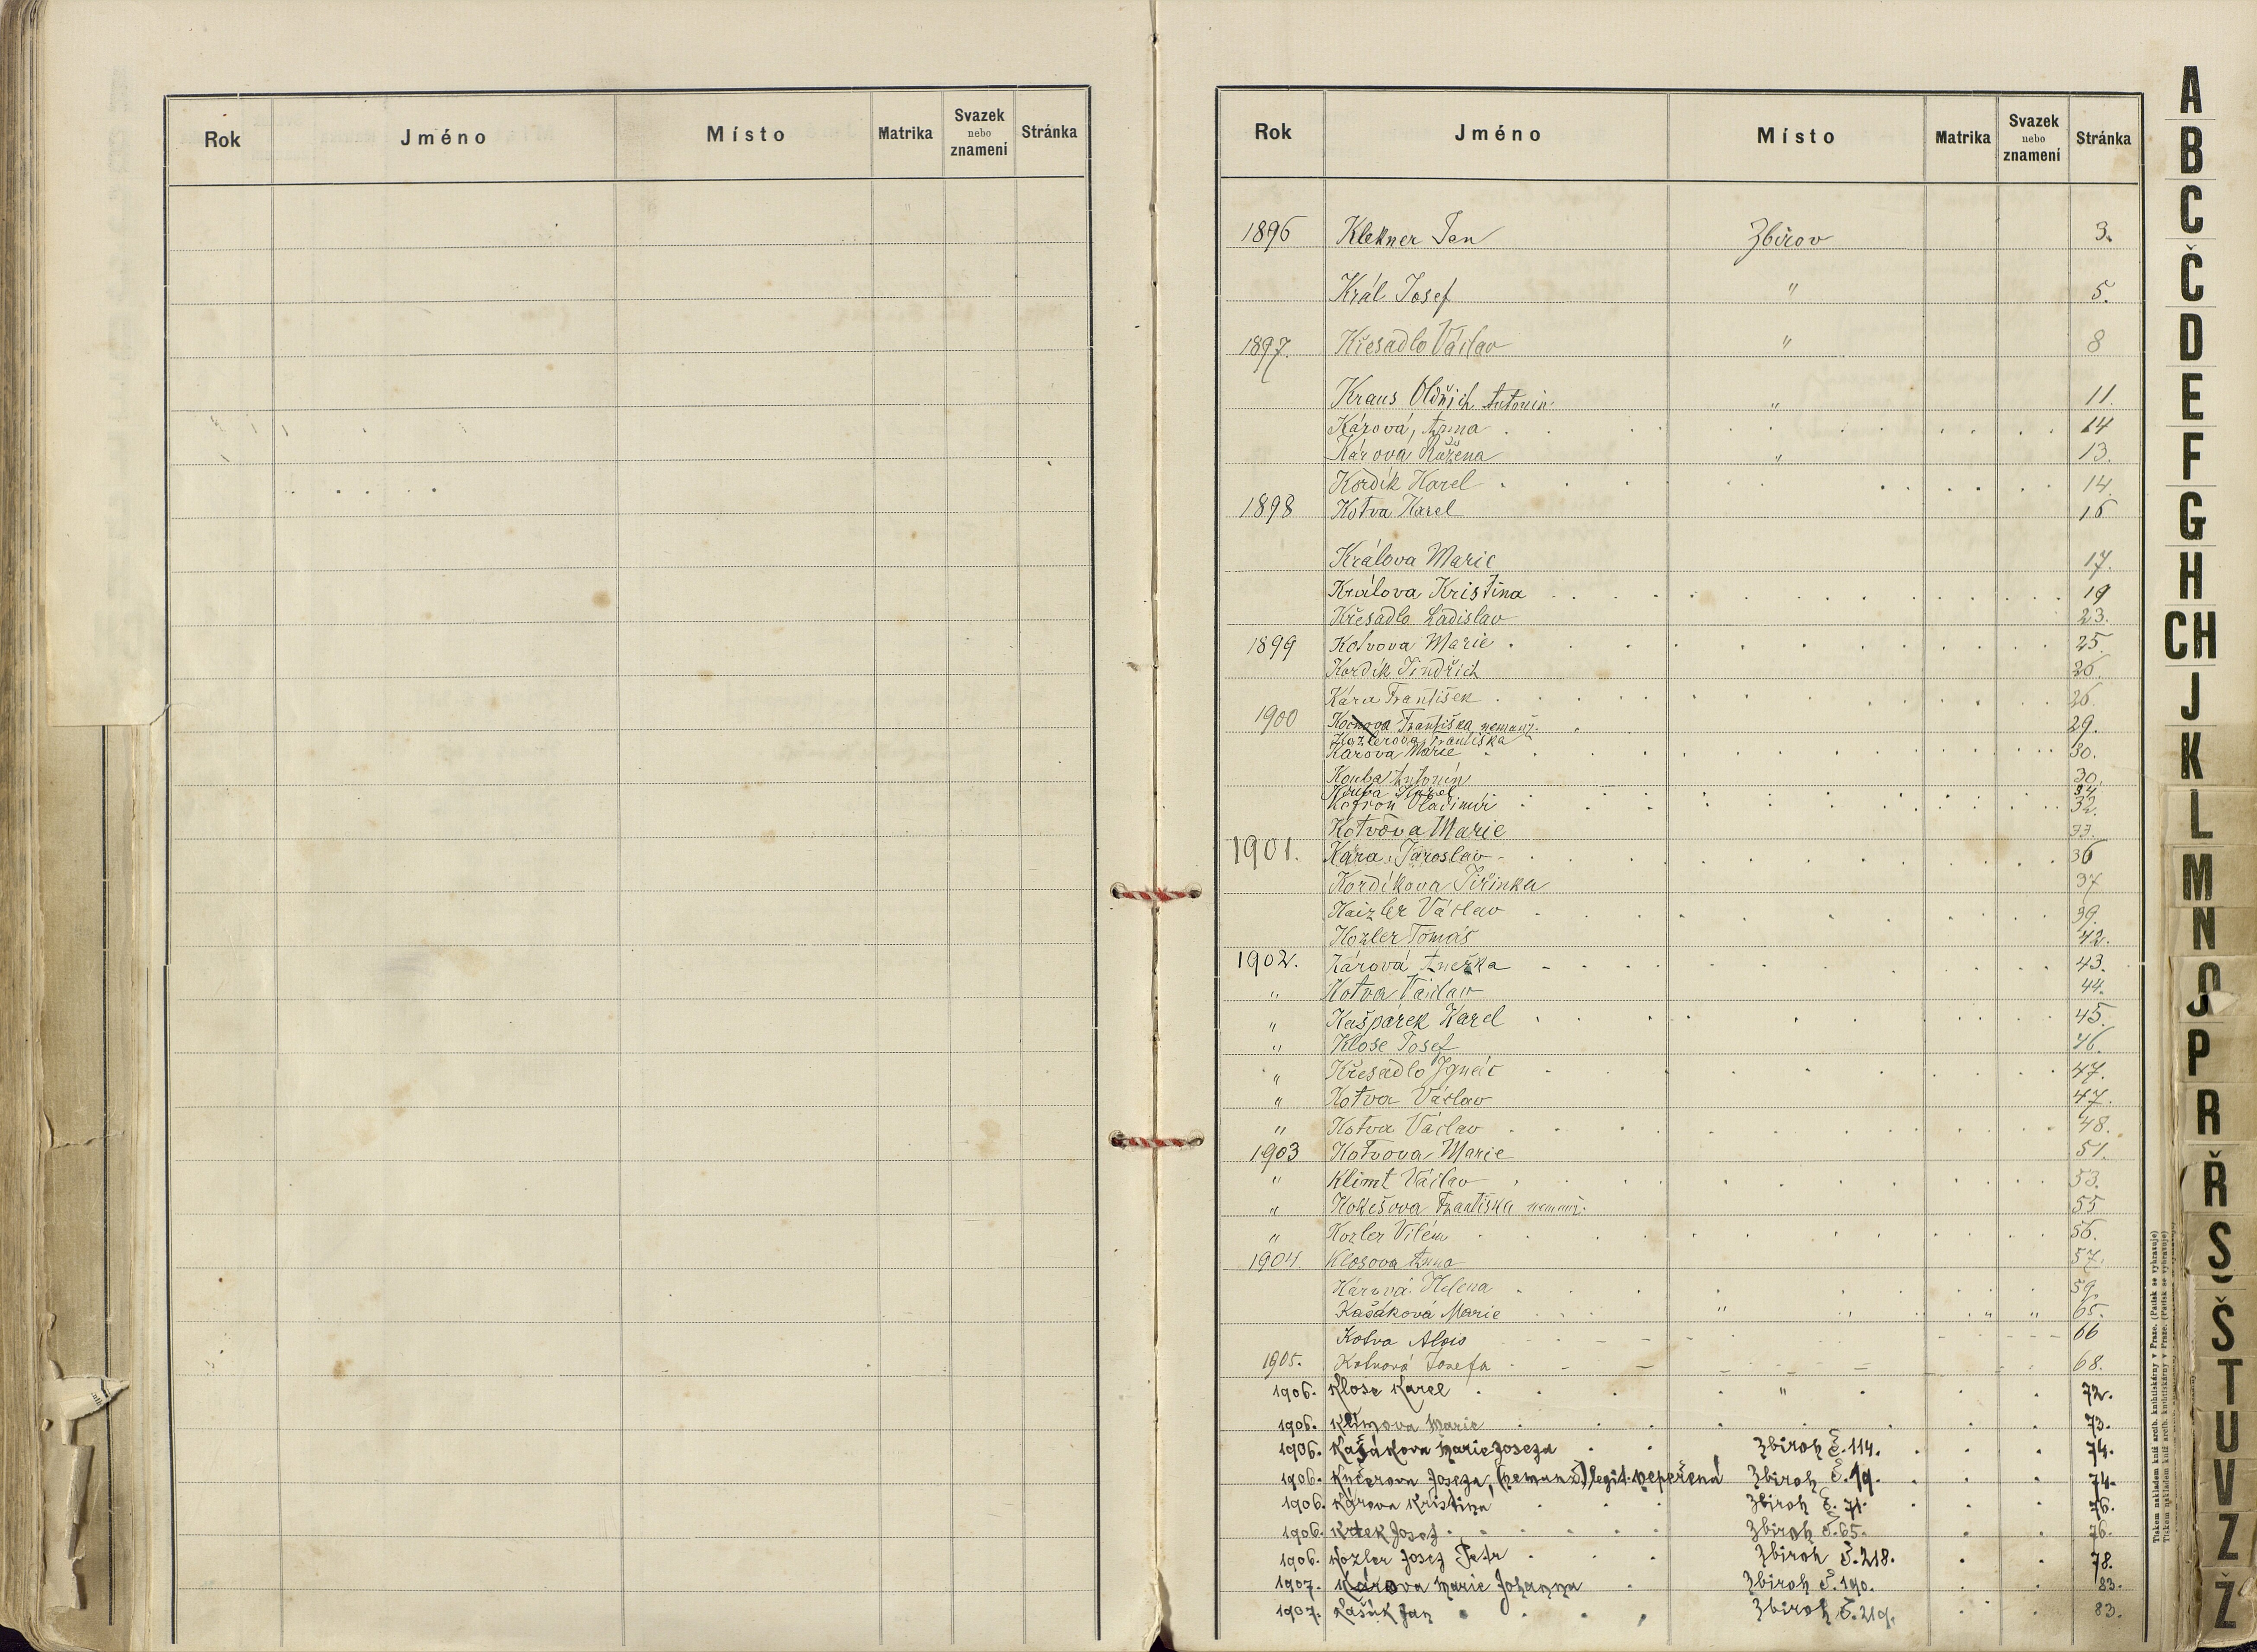 Rok Jméno Místo Matrika Svazek nebo znamení Stránka
Rok Jméno Místo Matrika Svazek nebo znamení Stránka
1896 Klekner Jan Zbirov 3.
Král Josef " 5.
1897. Křesadlo Václav " 8
Kraus Oldřich Antonín " 11.
Kárová, Anna 14
Károva Růžena " 13.
Kordík Karel 14.
1898 Kotva Karel 16
Králova Marie 17.
Králova Kristina 19
Křesadlo Ladislav 23.
1899 Kotvova Marie 25.
Kordík Jindřich 26.
Kára František 26.
1900 Františka nemanž. 29.
Kozlerova Františka
Károva Marie 30.
Kouba Antonín 30.
Kouba Karel 34.
Kofroň Vladimír 32.
Kotvova Marie 33.
1901. Kára Jaroslav 36
Kordíkova Jiřinka 37
Kaizler Václav 39.
Kozler Tomáš 42.
1902. Kárová Anežka 43.
" Kotva Václav 44.
" Kašpárek Karel 45.
" Klose Josef 46.
" Křesadlo Ignác 47.
" Kotva Václav 47.
" Kotva Václav 48.
1903 Kotvova Marie 51.
" Klimt Václav 53.
" Kokešova Františka nemanž. 55
" Kozler Vilém 56.
1904 Klosova Anna 57.
Kárová Helena 59.
Kašáková Marie " " " " 65.
Kotva Alois 66
1905. Kotvová Josefa 68.
1906. Klose Karel " 72.
1906. Klímova Marie 73.
1906. Kašákova Marie Josefa Zbiroh Č. 114. 74.
1906. Kučerova Josefa, (nemanž.) legit. Vepřená Zbiroh Č. 19. 74.
1906. Károva Kristina Zbiroh Č. 71. 76.
1906. Krtek Josef Zbiroh Č. 65. 76.
1906. Kozler Josef Petr Zbiroh Č. 218. 78.
1907. Károva Marie Johanna Zbiroh Č. 190. 83.
1907. Kašák Jan Zbiroh Č. 219. 83.
A
B
C
Č
D
E
F
G
H
CH
J
K
L
M
N
O
P
R
Ř
S
Š
T
U
V
Z
Ž